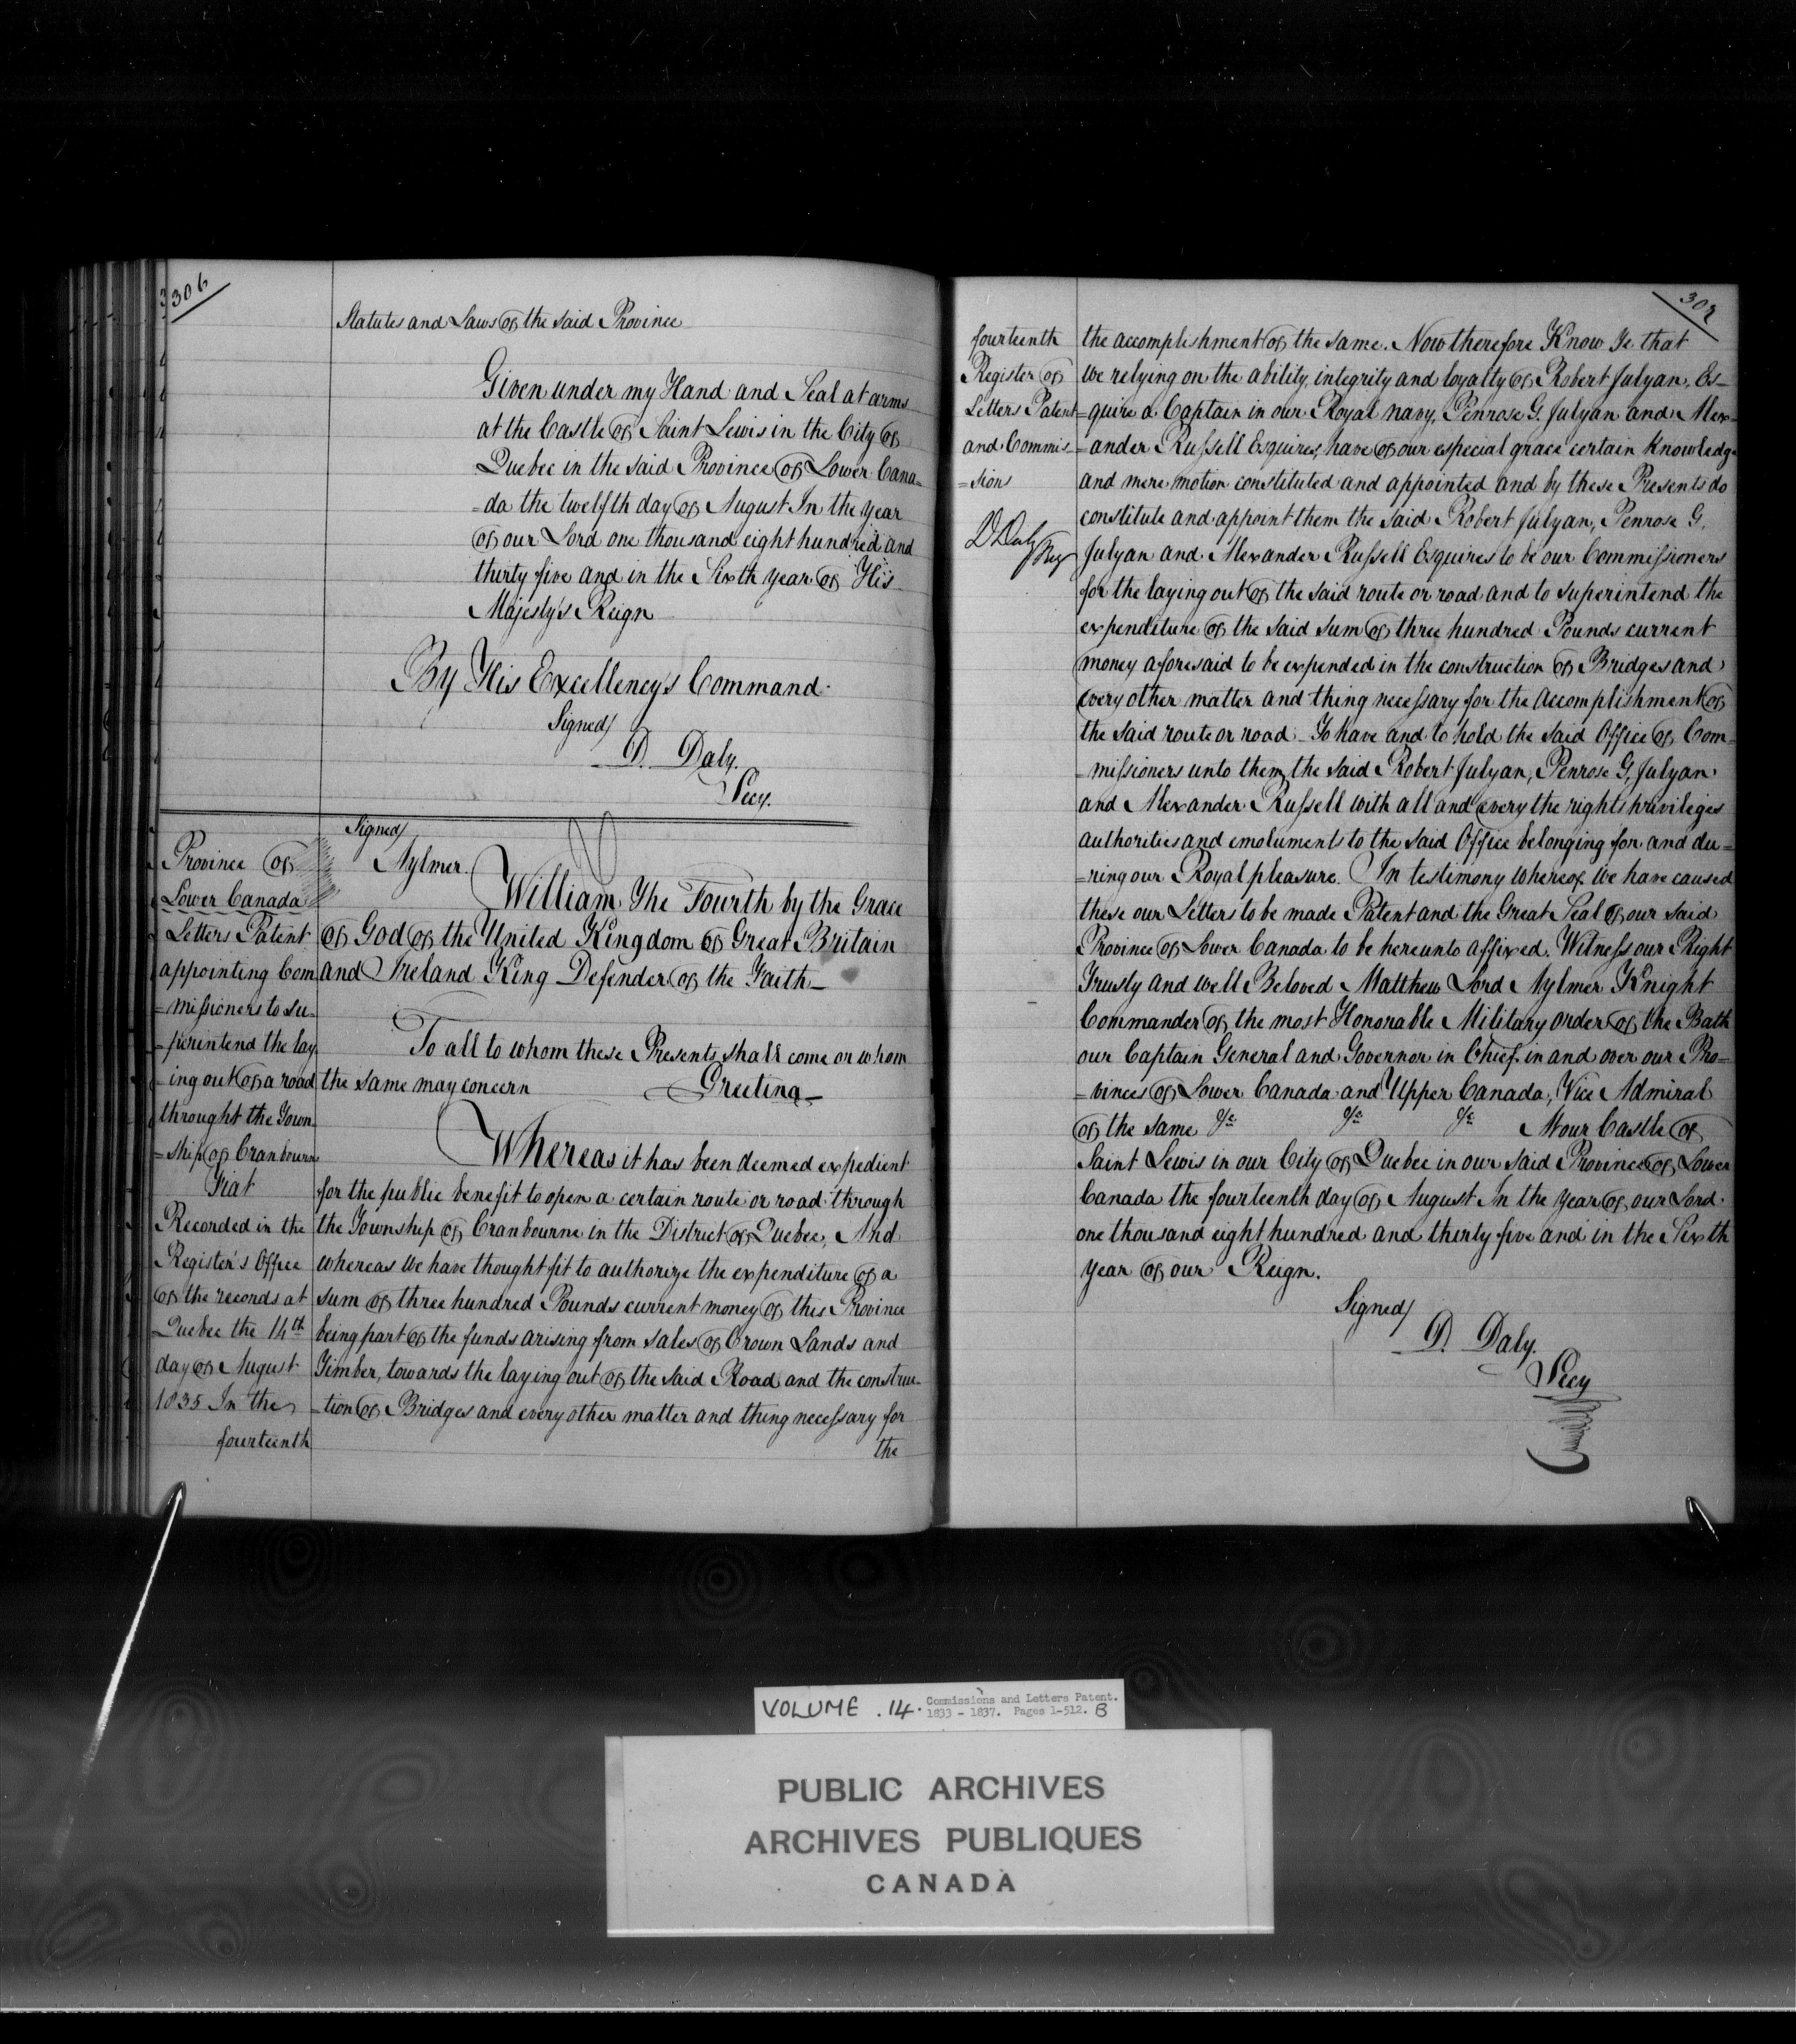 306
Statutes and Laws of the said Province
Given under my Hand and Seal at arms
at the Castle of Saint Lewis in the City of
Quebec in the said Province of Lower Cana=
=da the twelfth day of August In the year
of our Lord one thousand eight hundred and
thirty five and in the Sixth year of His
Majesty's Reign
By His Excellency's Command.
Signed/
D. Daly.
Secy.
Province of
Lower Canada
Letters Patent
appointing Com
=missioners to su=
=perintend the lay
=ing out of a road
throught the Town
=ship of Cranbourne
Fiat
Recorded in the
Register's Office
of the records at
Quebec the 14th
day of August
1835 In the
fourteenth
Signed/
Aylmer.
William The Fourth by the Grace
of God of the United Kingdom of Great Britain
and Ireland King Defender of the Faith_
To all to whom these Presents shall come or whom
the same may concern Greeting_
Whereas it has been deemed expedient
for the public benefit to open a certain route or road through
the Township of Cranbourne in the District of Quebec, And
whereas We have thought fit to authorize the expenditure of a
sum of three hundred Pounds current money of this Province
being part of the funds arising from sales of Crown Lands and
Timber, towards the laying out of the said Road and the construc=
=tion of Bridges and every other matter and thing necessary for
the
307
fourteenth
Register of
Letters Patent
and Commis=
=sions
D Daly
Reg
the accomplishment of the same. Now therefore Know Ye that
we relying on the ability, integrity and loyalty of Robert Julyan, Es=
=quire a Captain in our Royal navy, Penrose G. Julyan and Alex=
=ander Russell Esquires, have of our especial grace certain knowledge
and mere motion constituted and appointed and by these Presents do
constitute and appoint them the said Robert Julyan, Penrose G.
Julyan and Alexander Russell Esquires to be our Commissioners
for the laying out of the said route or road and to superintend the
expenditure of the said sum of three hundred Pounds current
money aforesaid to be expended in the construction of Bridges and
every other matter and thing necessary for the accomplishment of
the said route or road_ To have and to hold the said Office of Com=
=missioners unto them the said Robert Julyan, Penrose G, Julyan
and Alexander Russell with all and every the rights privileges
authorities and emoluments to the said Office belonging for and du=
=ring our Royal pleasure. In testimony whereof We have caused
these our Letters to be made Patent and the Great Seal of our said
Province of Lower Canada to be hereunto affixed. Witness our Right
Trusty and well Beloved Matthew Lord Aylmer Knight
Commander of the most Honorable Military order of the Bath
our Captain General and Governor in Chief in and over our Pro=
=vinces of Lower Canada and Upper Canada, Vice Admiral
of the same &c &c &c At our Castle of
Saint Lewis in our City of Quebec in our said Province of Lower
Canada the fourteenth day of August In the Year of our Lord
one thousand eight hundred and thirty five and in the Sixth
year of our Reign.
Signed/
D. Daly.
Secy
VOLUME .14. Commissions and Letters Patent.
1833 - 1837. Pages 1-512. B
PUBLIC ARCHIVES
ARCHIVES PUBLIQUES
CANADA